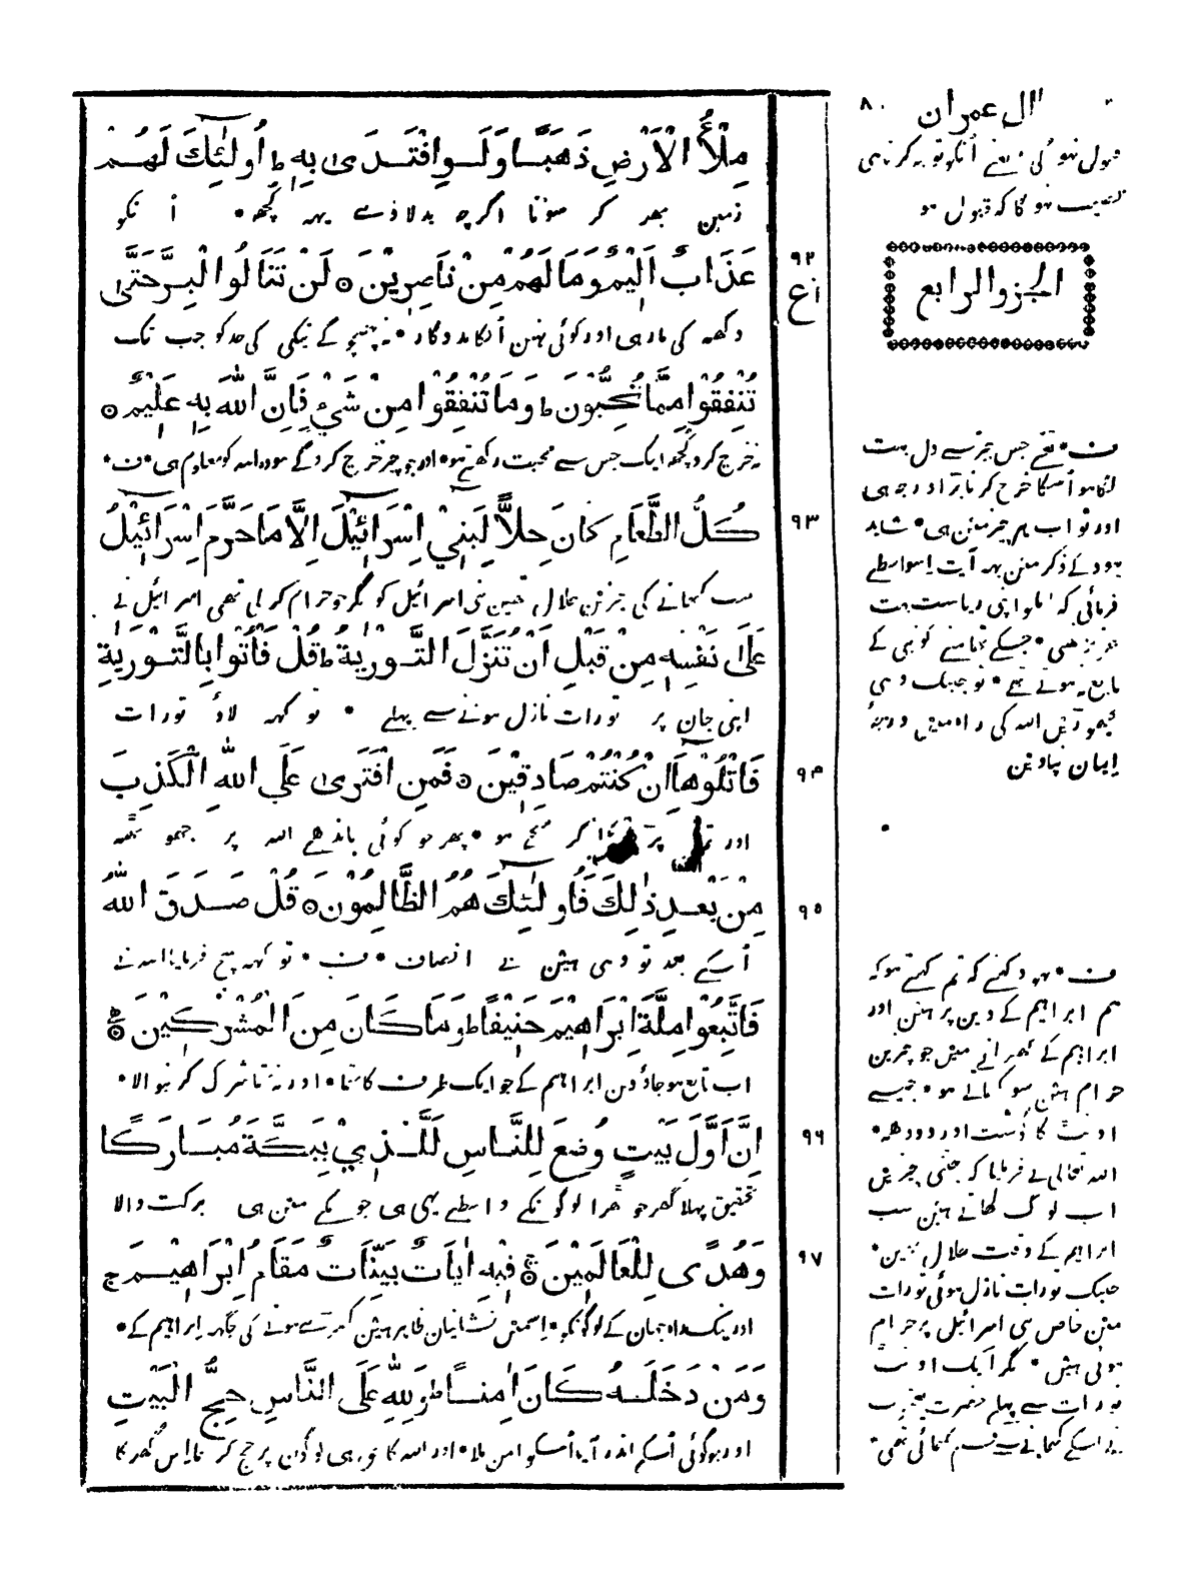 ٨٠
اٰل عمران
قبول نہو گی یعنے اُنکو توبہ کرنا ہی
نصیب نہو گا کہ قبول ہو
مِلْأُ الْاَرْضِ ذَهَبًا وَّلَوِ افْتَدٰى بِهٖ ط اُولٰۤئِكَ لَهُمْ
زمین بھر کر سونا اگرچہ بدلا دے یہہ کچھ • اُنکو
عَذَابٌ اَلِيْمٌ وَمَا لَهُمْ مِنْ نَاصِرِيْنَ ۞ لَنْ تَنَالُوا الْبِرَّ حَتّٰى
٩٢
ع
الجزو الرابع
دکھہ کی مار ہی اور کوئی نہین اُنکا مددگار • نہ پہنچو گے نیکی کی حد کو جب تک
تُنْفِقُوْا مِمَّا تُحِبُّوْنَ ط وَمَا تُنْفِقُوْا مِنْ شَيْءٍ فَاِنَّ اللّٰهَ بِهٖ عَلِيْمٌ ۞
نہ خرچ کرو کچھ ایک جس سے محبت رکھتے ہو • اور جو چیز خرچ کروگے سو وہ اللہ کو معلوم ہی • ف •
كُلُّ الطَّعَامِ كَانَ حِلًّا لِّبَنِيْۤ اِسْرَآئِيْلَ اِلَّا مَا حَرَّمَ اِسْرَآئِيْلُ
٩٣
سب کھانے کی چیزین حلال تھین بنی اسرائیل کو مگر جو حرام کر لی تھی اسرائیل نے
عَلٰى نَفْسِهٖ مِنْ قَبْلِ اَنْ تُنَزَّلَ التَّوْرٰىةُ ط قُلْ فَأْتُوْا بِالتَّوْرٰىةِ
اپنی جان پر تورات نازل ہونے سے پہلے • تو کہہ لاؤ تورات
فَاتْلُوْهَآ اِنْ كُنْتُمْ صَادِقِيْنَ ۞ فَمَنِ افْتَرٰى عَلَى اللّٰهِ الْكَذِبَ
٩٤
اور اگر سچے ہو • پھر جو کوئی باندھے اللہ پر جھوٹھہ
مِنْ بَعْدِ ذٰلِكَ فَاُولٰۤئِكَ هُمُ الظَّالِمُوْنَ ۞ قُلْ صَدَقَ اللّٰهُ
٩٥
اُسکے بعد تو وہی ہین بے انصاف • ف • تو کہہ سچ فرمایا اللہ نے
فَاتَّبِعُوْا مِلَّةَ اِبْرَاهِيْمَ حَنِيْفًا ط وَمَا كَانَ مِنَ الْمُشْرِكِيْنَ ۞
اب تابع ہوجاؤ دین ابراہیم کے جو ایک طرف کا تھا • اور نہ تھا شرک کرنیوالا •
اِنَّ اَوَّلَ بَيْتٍ وُضِعَ لِلنَّاسِ لَلَّذِيْ بِبَكَّةَ مُبَارَكًا
٩٦
تحقیق پہلا گھر جو ٹھہرا لوگونکے واسطے یہی ہی جو مکے مین ہی برکت والا
وَهُدًى لِلْعَالَمِيْنَ ۞ فِيْهِ اٰيَاتٌ بَيِّنَاتٌ مَقَامُ اِبْرَاهِيْمَ ج
٩٧
اور نیک راہ جہان کے لوگونکو • اِسمین نشانیان ظاہر ہین کھڑے ہونے کی جگہہ ابراہیم کے •
وَمَنْ دَخَلَهٗ كَانَ اٰمِنًا ط وَلِلّٰهِ عَلَى النَّاسِ حِجُّ الْبَيْتِ
اور جو کوئی اُسکے اندر آیا اُسکو امن ملا • اور اللہ کا حق ہی لوگون پر حج کرنا اِس گھر کا
ف • یعنے جس چیز سے دل بہت
لگا ہو اُسکا خرچ کرنا بڑا درجہ ہی
اور ثواب ہر چیز مین ہی • شاید
یہود کے ذکر مین یہہ آیت اِسواسطے
فرمائی کہ اُنکو اپنی ریاست بہت
عزیز تھی • جسکے تھامنے کو نبی کے
تابع نہوتے تھے • تو جبتک وہی
نچھوڑین اللہ کی راہ مین درجہ
اِیمان نپاوین
ف • یہود کہنے کہ تم کہتے ہو کہ
ہم ابراہیم کے دین پر ہین اور
ابراہیم کے گھرانے مین جو چیزین
حرام ہین سو کھاتے ہو • جیسے
اونٹ کا گوشت اور دودھہ •
اللہ تعالی نے فرمایا کہ جتنی چیزین
اب لوگ کھاتے ہین سب
ابراہیم کے وقت حلال تھین •
جبتک تورات نازل ہوئی تورات
مین خاص بنی اسرائیل پر حرام
ہوئی ہین • مگر ایک اونٹ
تورات سے پہلے حضرت یعقوب
نے اسکے کھانے سے قسم کھائی تھی •